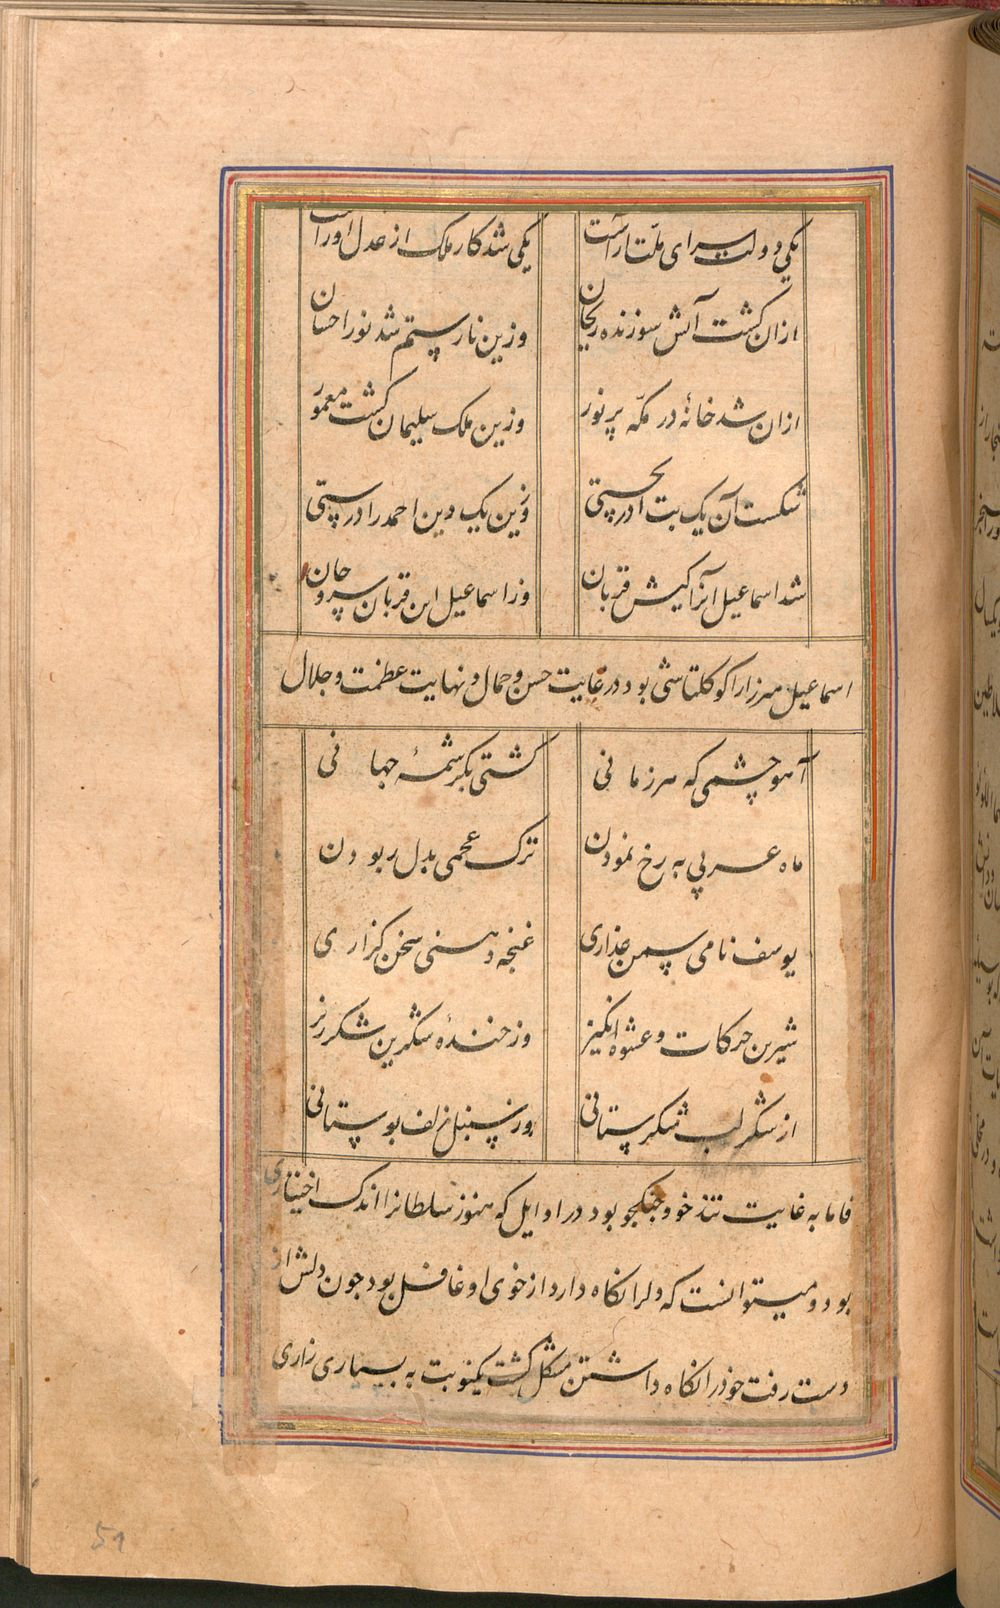 یکی دولت سرای ملت آراست
یکی شد کار ملک از عدل او راست
ازان گشت آتش سوزنده ریحان
وزین نار ستم شد نور احسان
ازان شد خانهٔ در مکه پر نور
وزین ملک سلیمان گشت معمور
شکست آن یک بت
وزین یک دین احمد را درستی
شد اسماعیل آنرا کیش قربان
وز اسماعیل این قربان سر و جان
اسماعیل میرزا را کوکلتاشی بود در غایت حسن و جمال و نهایت عظمت و جلال
آهو چشمی که هر زمانی
کشتی بکرشمهٔ جهانی
ماه عربی به رخ نمودن
ترک عجمی بدل ربودن
یوسف نامی سمن عذاری
غنچه دهنی سخن گزاری
شیرین حرکات و عشوه انگیز
وز خندهٔ شکرین شکر ریز
از شکر لب شکرستانی
وز سنبل زلف بوستانی
فاما به غایت تند خو و جنکجو بود در اوایل که هنوز سلطانرا اندک اختیاری
بود و میتوانست که دلرا نکاه دارد از خوی او غافل بود چون دلش از
دست رفت خودرا نکاه داشتن مشکل گشت یکنوبت به بسیاری زاری
51